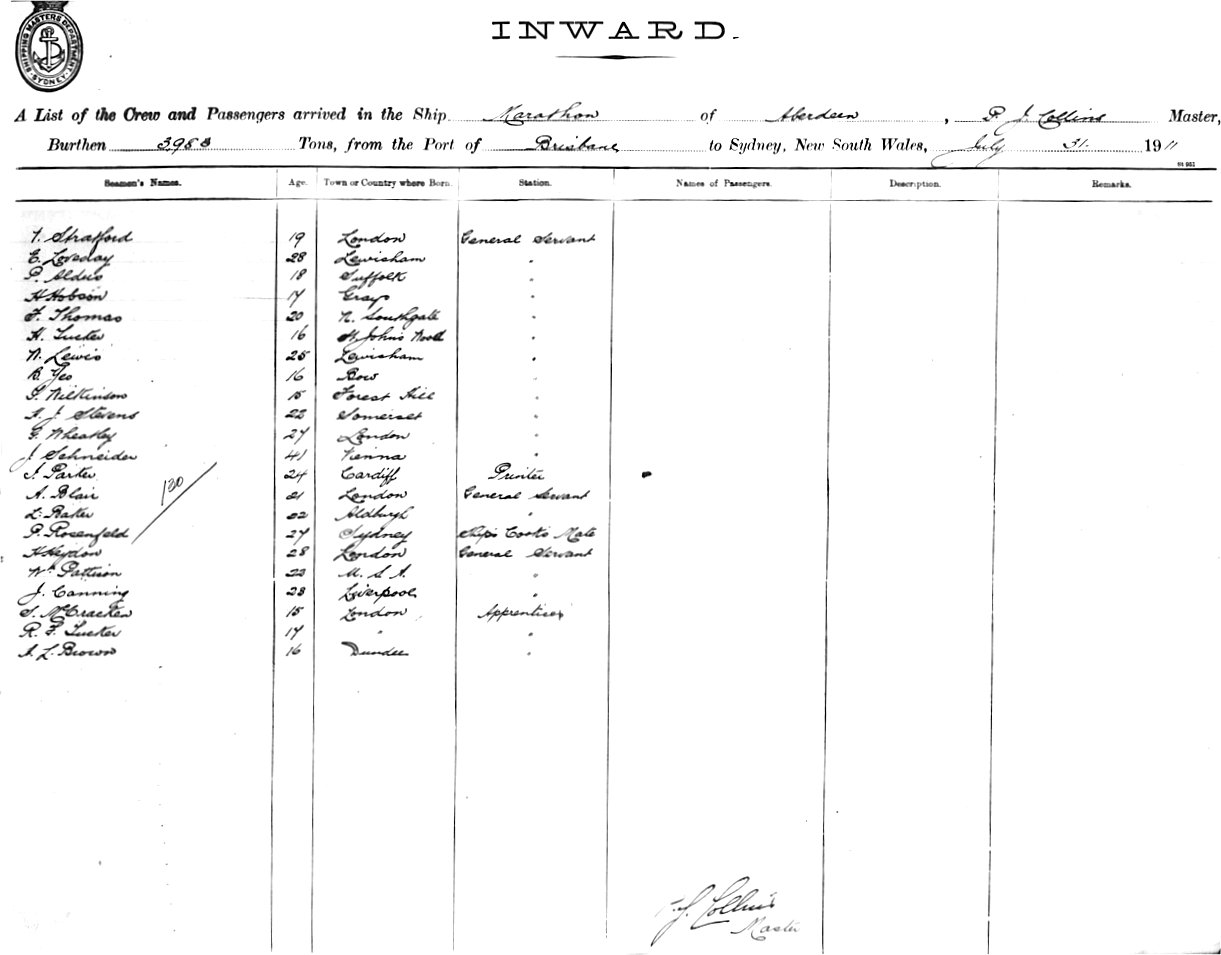 SHIPPING MASTERS DEPARTMENT
SYDNEY
INWARD.
A List of the Crew and Passengers arrived in the Ship Marathon of Aberdeen, P. J. Collins Master,
Burthen Tons, from the Port of Brisbane to Sydney, New South Wales, July 31. 1911
Seamen's Names. Age. Town or Country where Born. Station. Names of Passengers. Description. Remarks.
Stratford 19 London General Servant
E. Loveday 28 Lewisham "
P. Aldus 18 Suffolk "
H Hobson 17 Grays "
F. Thomas 20 N. Southgate "
H. Tucker 16 St Johns Wood "
W. Lewis 25 Lewisham "
B. Yeo 16 Bow "
G. Wilkinson 15 Forest Hill "
A. J. Stevens 22 Somerset "
G. Wheatley 27 London "
J. Schneider 41 Vienna "
Parker 24 Cardiff Printer
A. Blair 21 London General Servant
L. Baker 22 Aldburgh "
P. Rosenfeld 27 Sydney Ships Cooks Mate
H Heydon 28 London General Servant
Wm Pattison 22 U. S. A. "
J. Canning 28 Liverpool "
S. McCracken 15 London Apprentices
R. F. Tucker 17 " "
A. L. Brown 16 Dundee "
130
P. J. Collins
Master